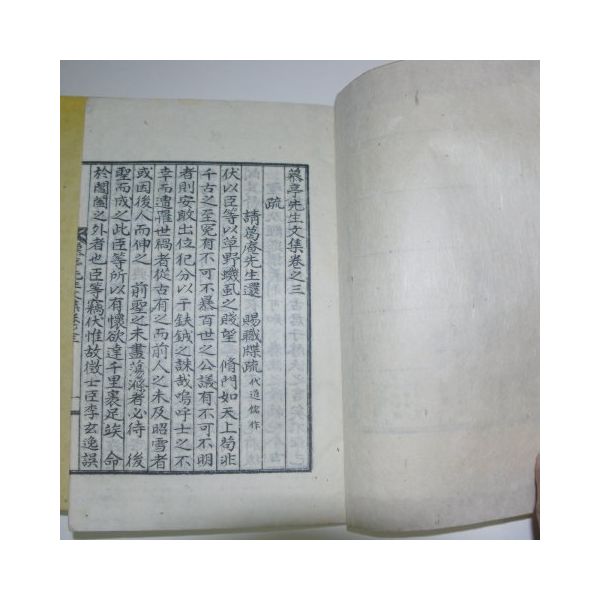 亭先生文集卷之三
疏
請葛庵先生還 賜職牒疏 代道儒作
伏以臣等以草野蟣虱之賤望 脩門如天上苟非
千古之至寃有不可不暴百世之公議有不可不明
者則安敢出位犯分以干鈇鉞之誅哉嗚呼士之不
幸而遭罹世禍者從古有之而前人之未及昭雪者
或因後人而伸之 前聖之未盡蕩滌者必待 後
聖而成之此臣等所以有懷欲達千里裹足竢 命
於闔闥之外者也臣等竊伏惟故徵士臣李玄逸誤